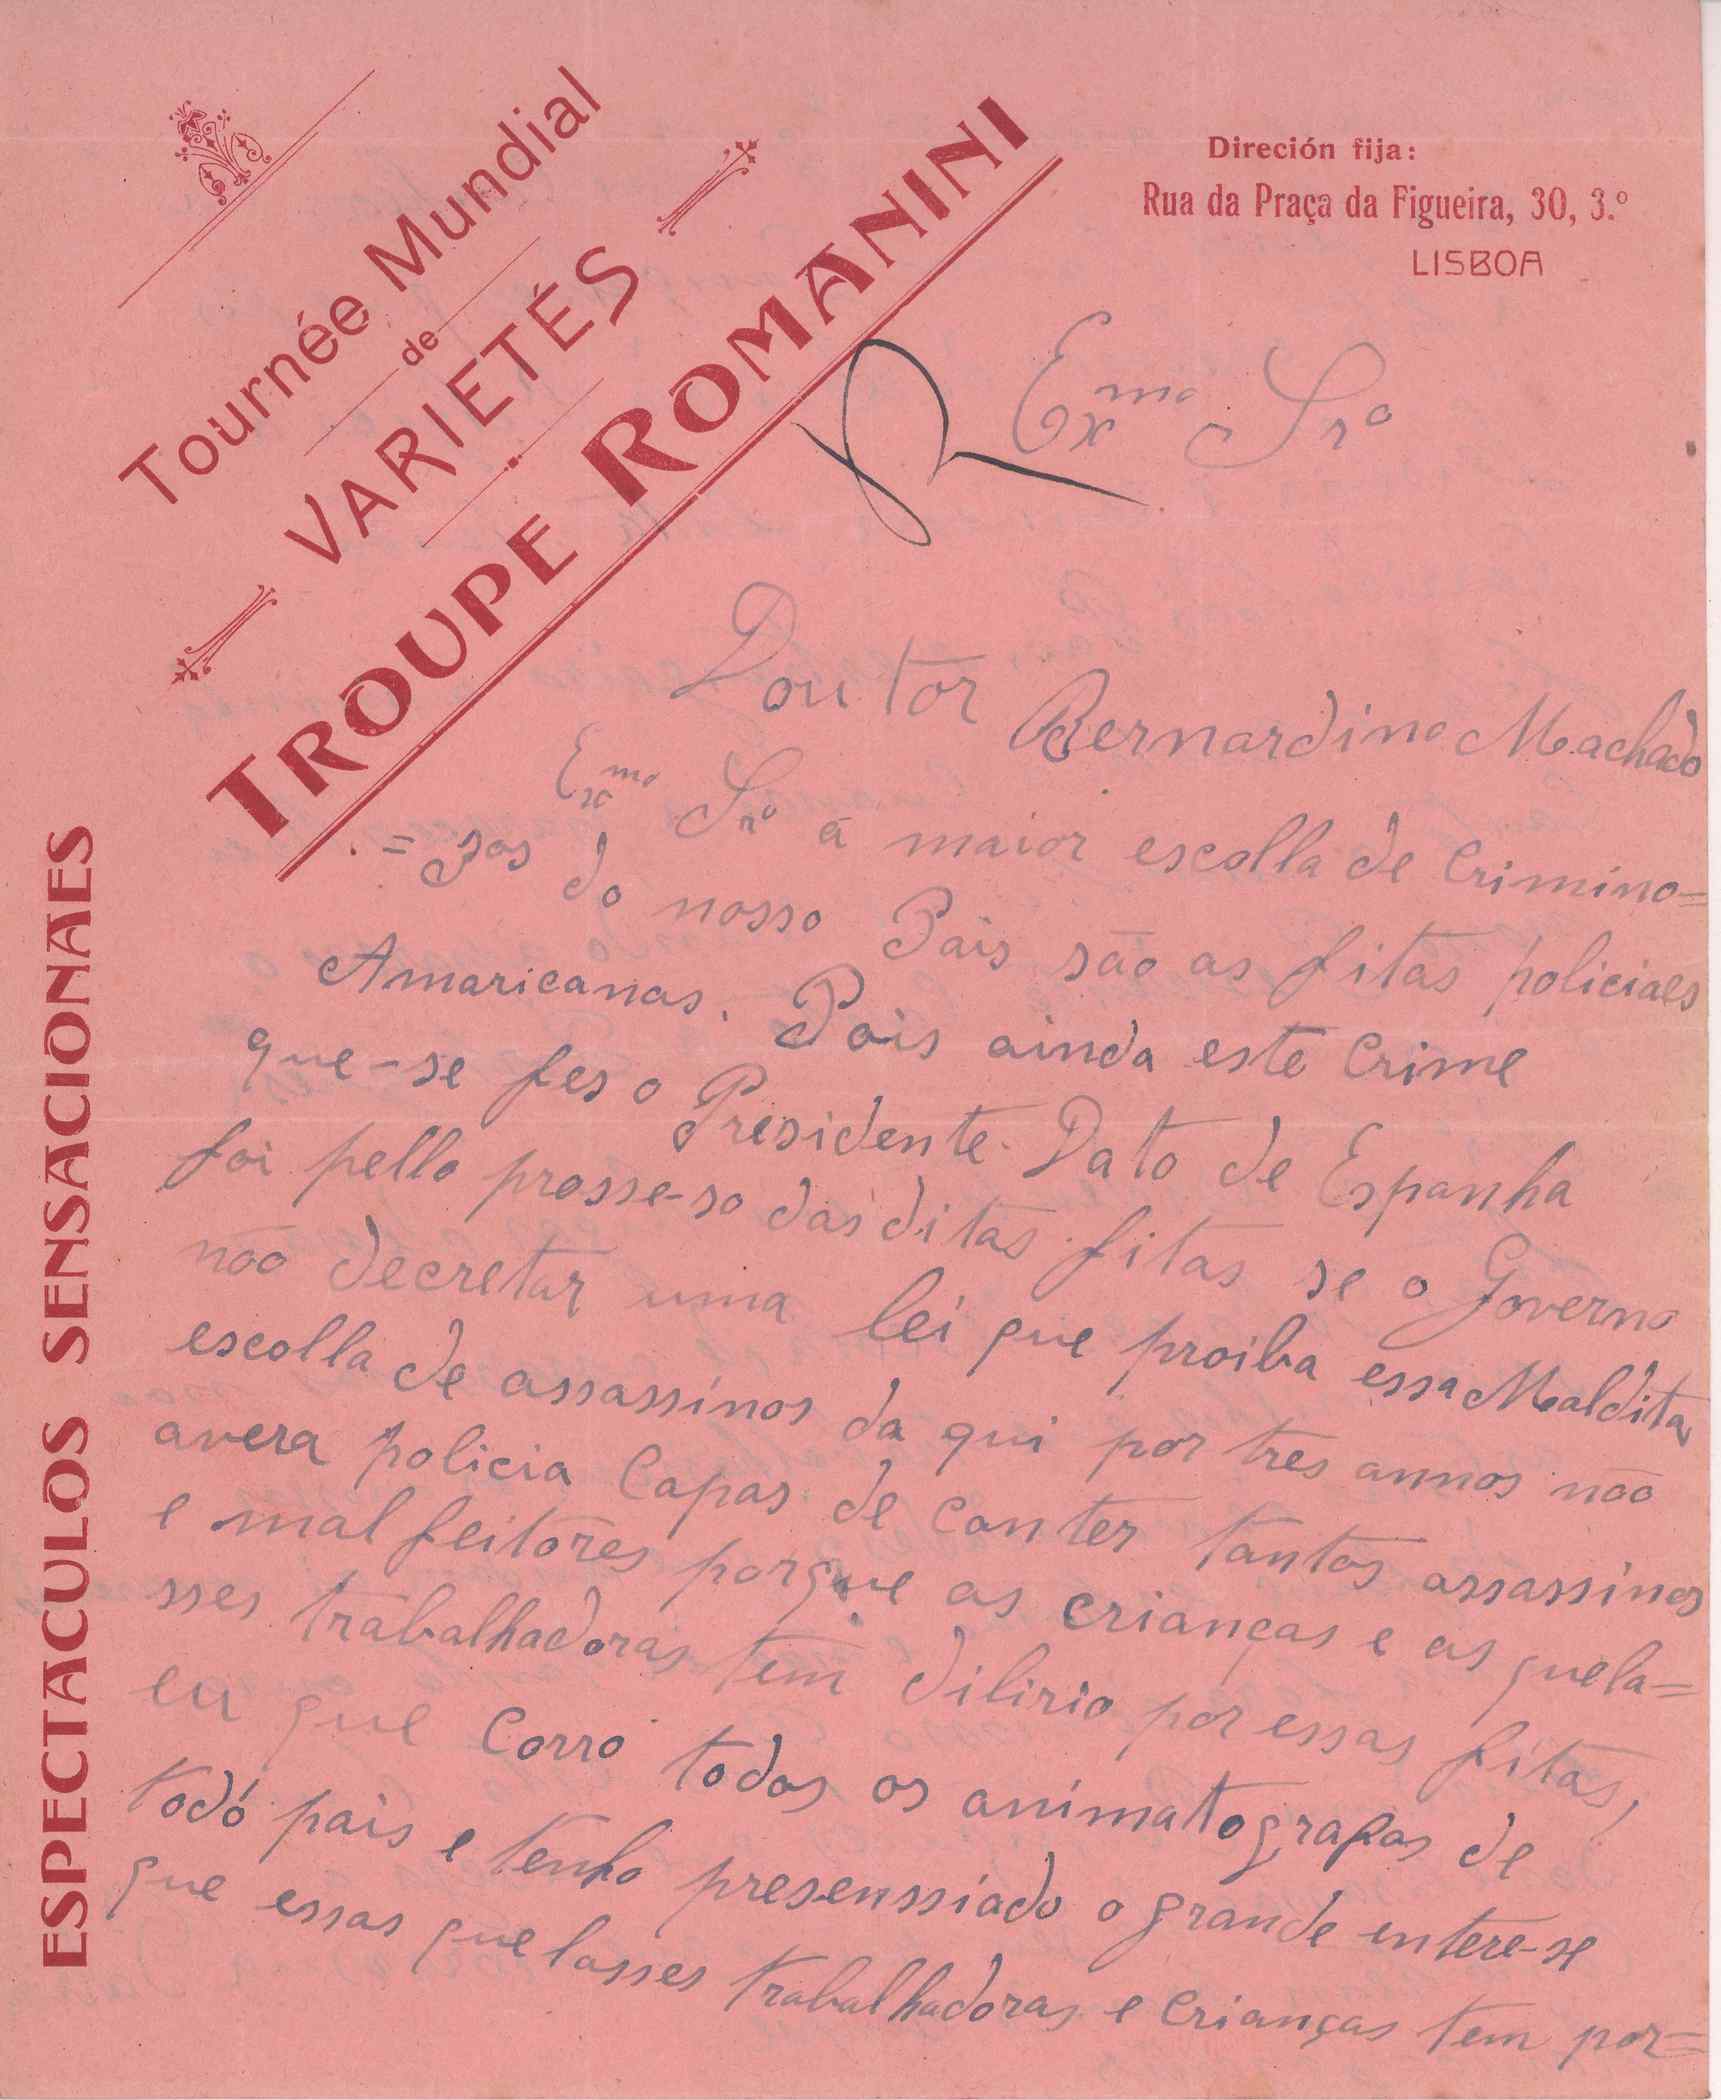 Tournée Mundial
de
VARIETÉS
TROUPE ROMANINI
Direción fija:
Rua da Praça da Figueira, 30, 3.º
LISBOA
ESPECTACULOS SENSACIONAES
Exmo Sro
Doutor Bernardino Machado
Exmo Sro a maior escolla de Crimino=
=zos do nosso Pais são as fitas policiaes
Amaricanas. Pois ainda este Crime
que-se fes o Presidente Dato de Espanha
foi pello prosse-so das ditas fitas se o Governo
não decretar uma lei que proiba essa Maldita
escolla de assassinos da qui por tres annos não
avera policia Capas de conter tantos assassinos
e mal feitores porque as crianças e as quela=
sses trabalhadoras tem dilirio por essas fitas,
eu que Corro todos os animatografos de
todó pais e tenho presenssiado o grande entere-se
que essas quelasses trabalhadoras e Crianças tem por=